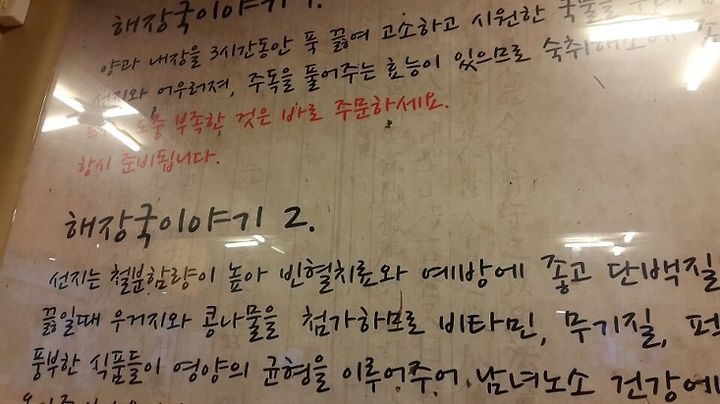 해장국이야기 1.
양과 내장을 3시간동안 푹 끓여 고소하고 시원한 국물을
선지와 어우러져, 주독을 풀어주는 효능이 있으므로 숙취해소에
부족한 것은 바로 주문하세요.
항시 준비됩니다.
해장국이야기 2.
선지는 철분함량이 높아 빈혈치료와 예방에 좋고 단백질
끓일때 우거지와 콩나물을 첨가하므로 비타민, 무기질,
풍부한 식품들이 영양의 균형을 이루어주어, 남녀노소 건강에